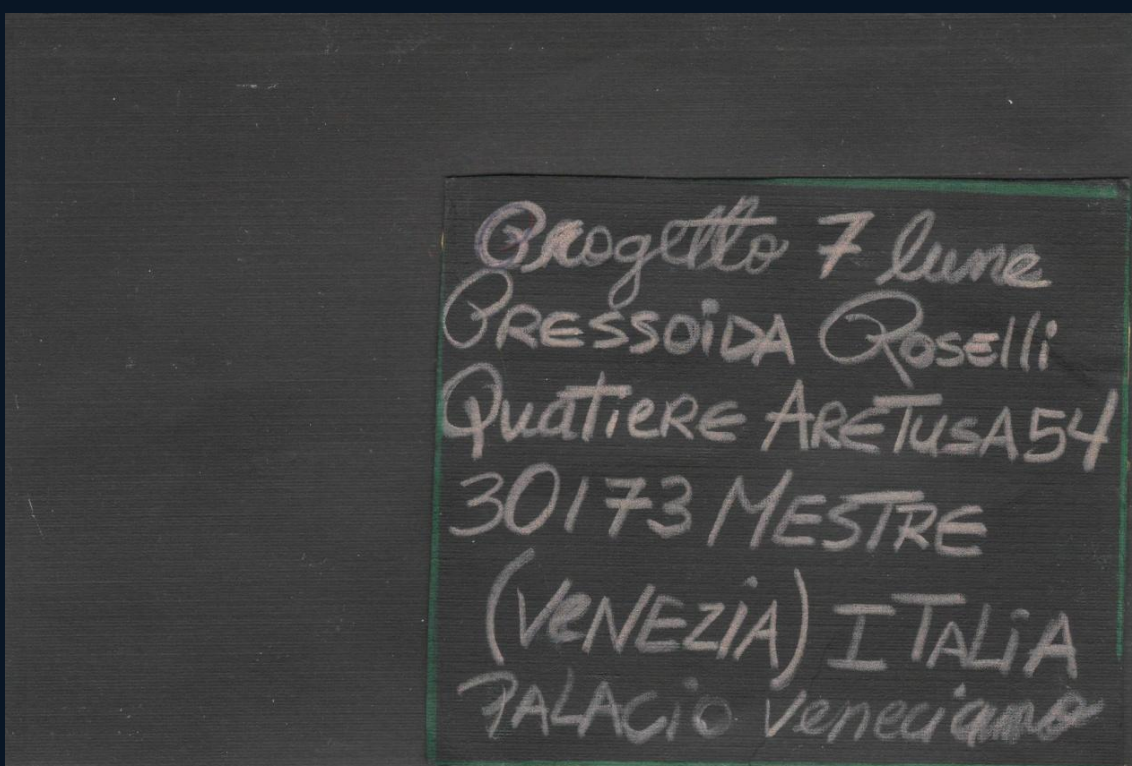 Progetto 7 lune
PRESSOiDA Roselli
QuatiERE ARETusA 54
30173 MESTRE
(VeNEZiA) ITALiA
PALACiO Veneciano